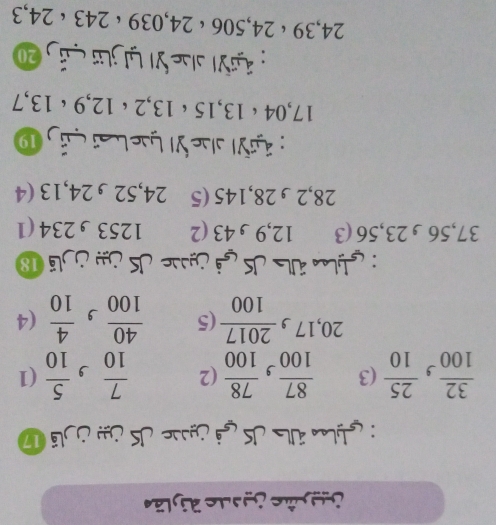 مقارنة عددين عشريين
17 قارن بين كل عددين في كل حالة مما يلي :
1) 5/10 و 7/10 2) 78/100 و 87/100 3) 25/10 و 32/100
4) 4/10 و 40/100 5) 2017/100 و 20,17
18 قارن بين كل عددين في كل حالة مما يلي :
1) 234 و 1253 2) 43 و 12,9 3) 23,56 و 37,56
4) 24,13 و 24,52 5) 28,145 و 28,2
19 رتب تصاعديا الأعداد الآتية :
13,7 ، 12,9 ، 13,2 ، 13,15 ، 17,04
20 رتب تنازليا الأعداد الآتية :
24,3 ، 243 ، 24,039 ، 24,506 ، 24,39